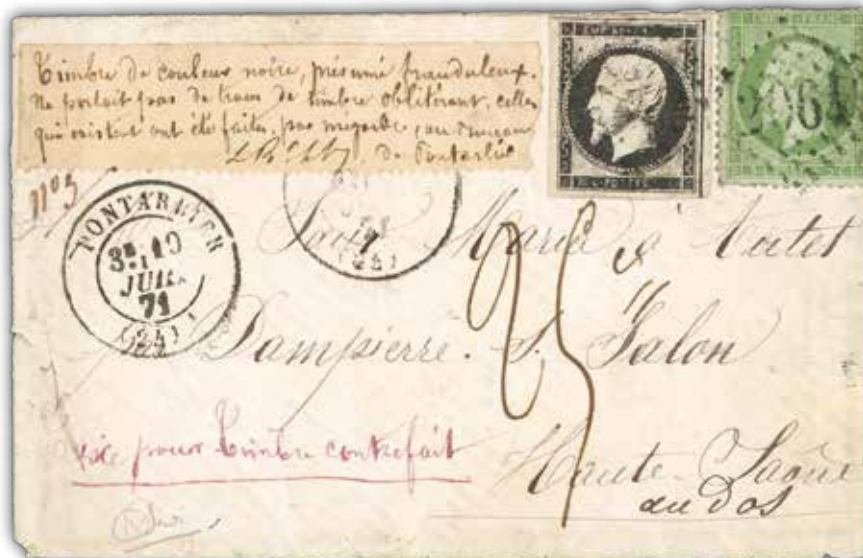 Timbre de couleur noire, présumé frauduleux.
Ne portait pas de traces de timbre oblitérant, celles
qui existent ont été faites, par mégarde, au bureau
de Pontarlier
n° 5
PONTARLIER
3E 19
JUIL.
71
(24)
(24)
EMP FRANC
Marie
Dampierre. S. Salon
Haute-Saône
au dos
25
taxe pour timbre contrefait